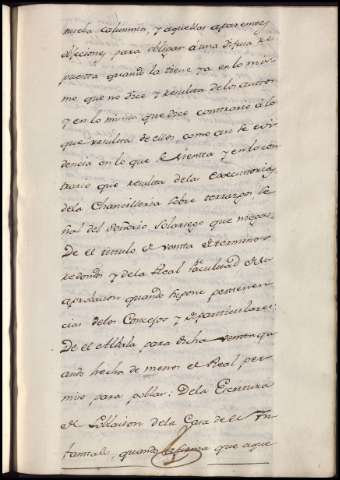 mucha calumnia, y aquellas aparentes
objeciones, para obligar á una difusa re
puesta, quando la tiene ya en lo mis
mo, que no dice y resulta de los autos,
y en lo mismo que dice contrario á lo
que resulta de ellos, como an se evi
dencia en lo que se sienta y en lo con
trario que resulta de la executoria
de la Chancilleria sobre terrazgo, se
ñal del Señorio Solariego que niegan:
De el titulo de venta de terminos
redondos, y de la Real facultad de su
aprobacion quando supone pertenen
cias de los Concejos y de particulares:
De el Alcala para dicha venta, qu
ando hecha de menos el Real per
miso para poblar: De la Escritura
de Poblacion de la Casa de el In
fantado, quando que aque